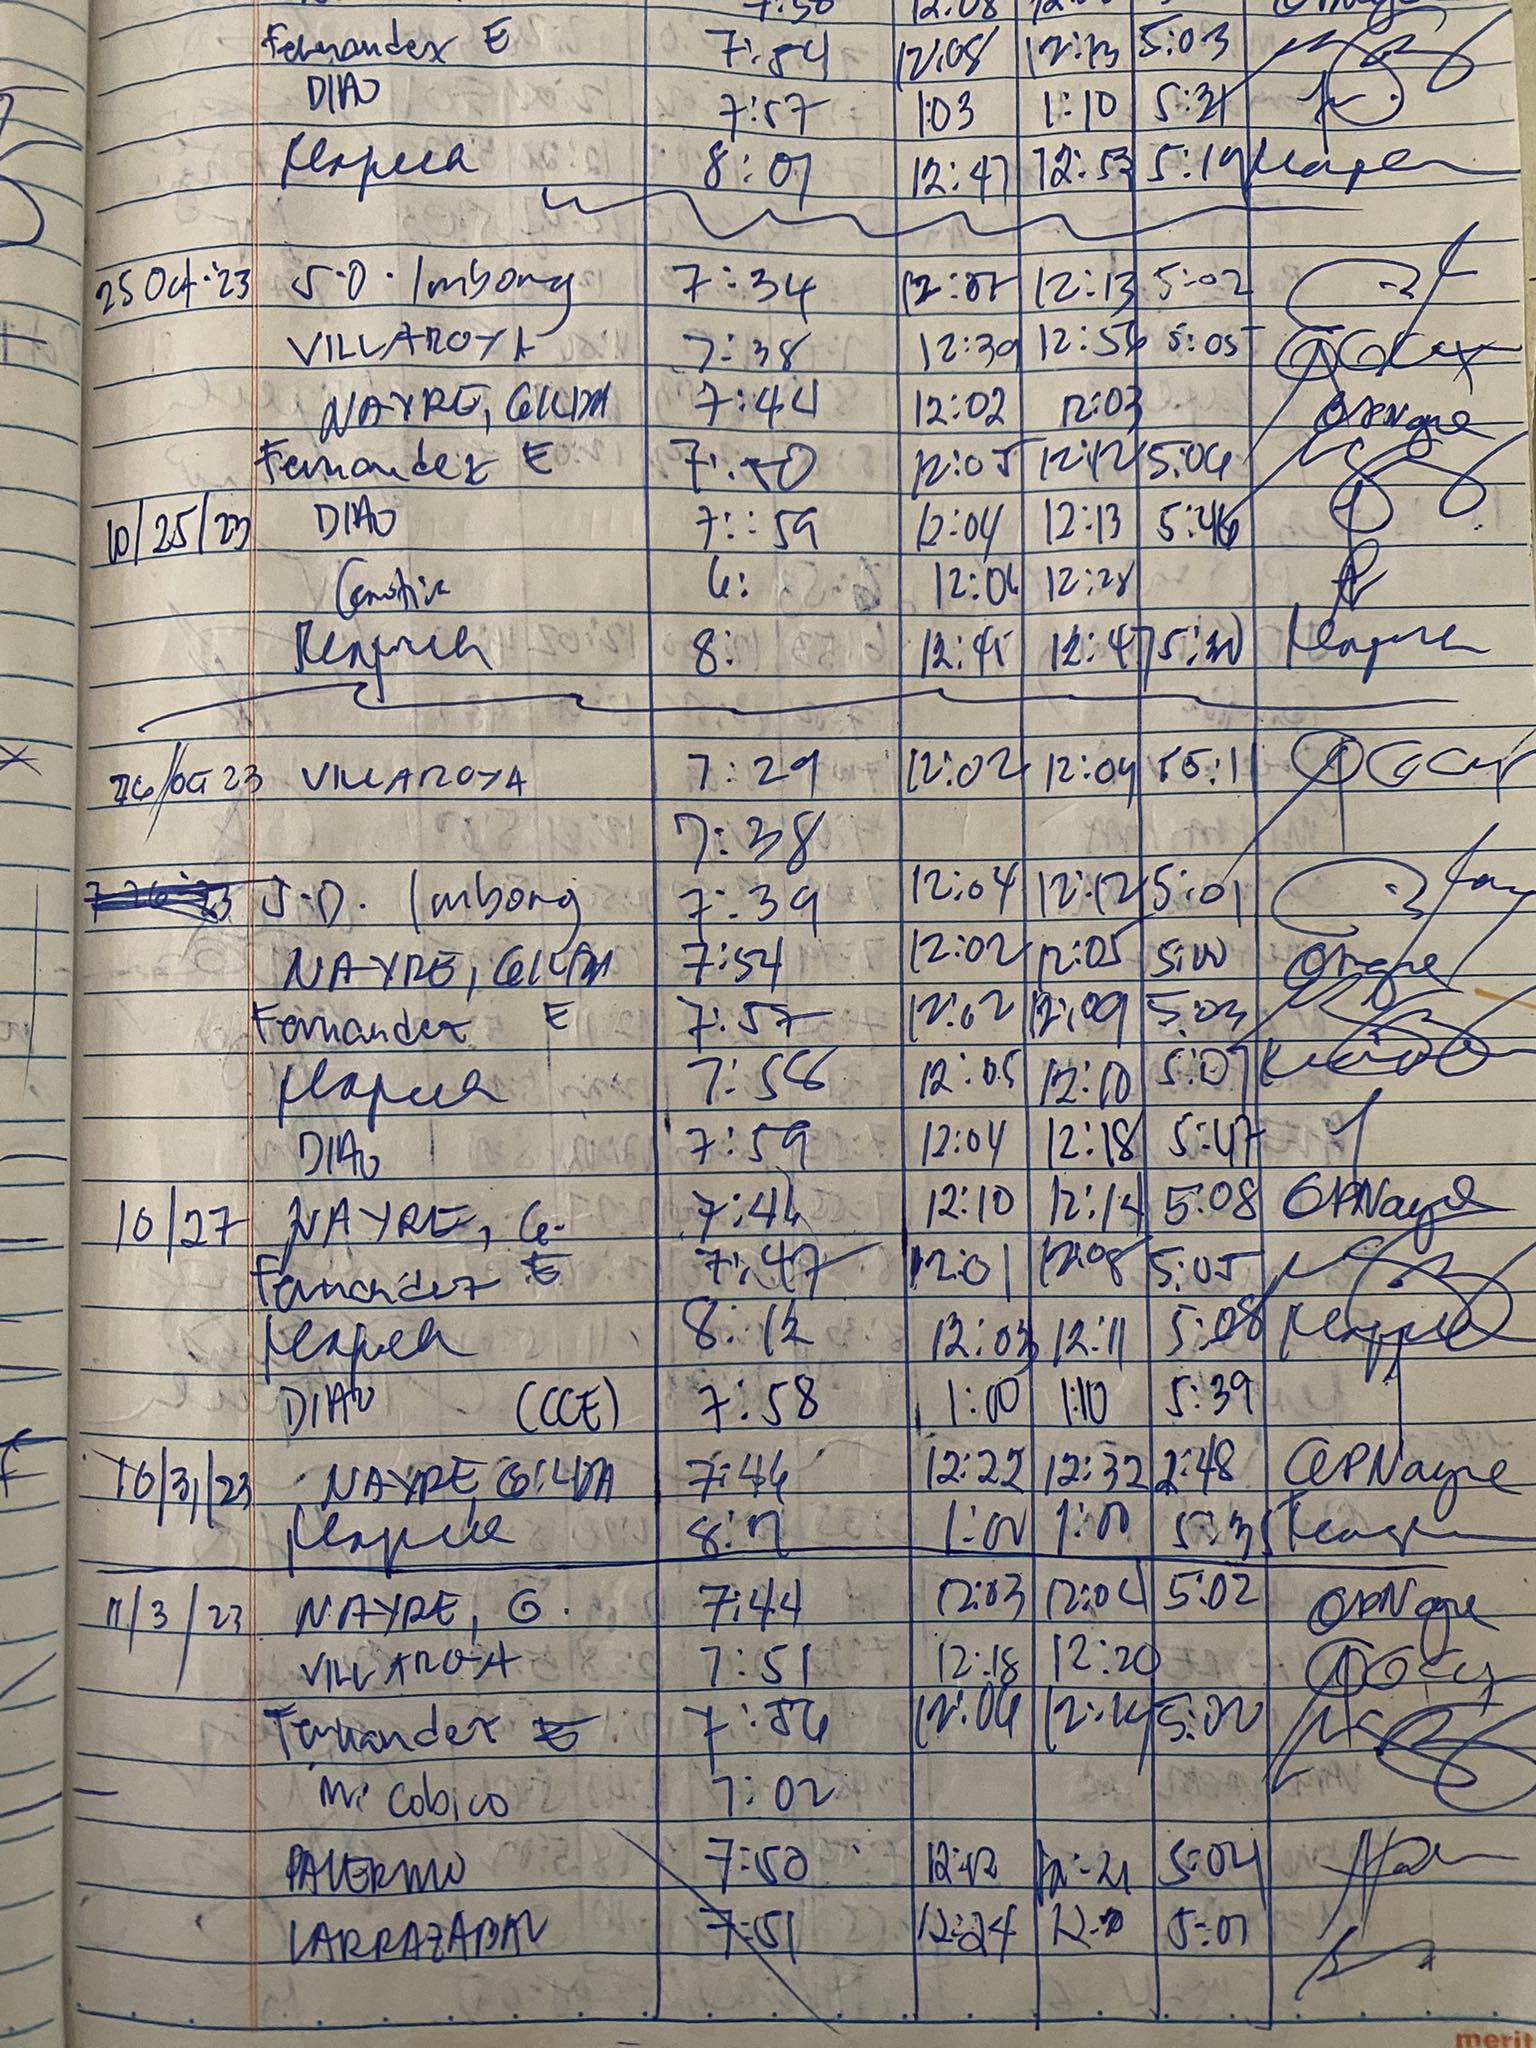 7:50 12:08
Fernandez E 7:54 12:08 12:13 5:03
DIAO 7:57 1:03 1:10 5:31
8:07 12:47 12:53 5:19
25 Oct. '23 J.D. Imbong 7:34 12:07 12:13 5:02
VILLAROYA 7:38 12:39 12:56 5:05
NAYRE, GILDA 7:44 12:02 12:03
Fernandez E 7:50 12:05 12:12 5:06
10/25/23 DIAO 7:59 12:04 12:13 5:46
6: 12:06 12:28
8: 12:45 12:47 5:30
26/Oct 23 VILLAROYA 7:29 12:02 12:04 5:11
7:38
J.D. Imbong 7:39 12:04 12:12 5:01
NAYRE, GILDA 7:54 12:02 12:05 5:00
Fernandez E 7:57 12:02 12:09 5:03
7:58 12:05 12:10 5:07
DIAO 7:59 12:04 12:18 5:47
10/27 NAYRE, G. 7:46 12:10 12:14 5:08 GPNayre
Fernandez E 7:47 12:01 12:08 5:05
8:12 12:03 12:11 5:08
DIAO (CCE) 7:58 1:00 1:10 5:39
10/31/23 NAYRE, GILDA 7:46 12:22 12:32 2:48 GPNayre
1:00 1:00 5:35
11/3/23 NAYRE, G. 7:44 12:03 12:04 5:02 GPNayre
VILLAROYA 7:51 12:18 12:20
Fernandez E 7:56 12:06 12:14 5:02
7:02
PALERMO 7:50 12:12 12:21 5:04
LARRAZABAL 7:51 12:24 5:01
merit